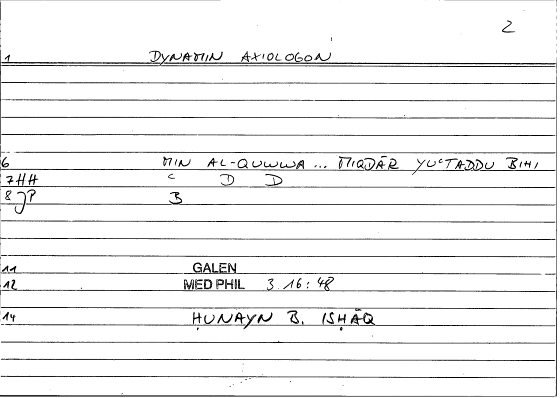 2
1 DYNAMIN AXIOLOGON
6 MIN AL-QUWWA ... MIQDĀR YUʿTADDU BIHI
7HH C D D
8JP B
11 GALEN
12 MED PHIL 3.16:48
14 ḤUNAYN B. ISḤĀQ